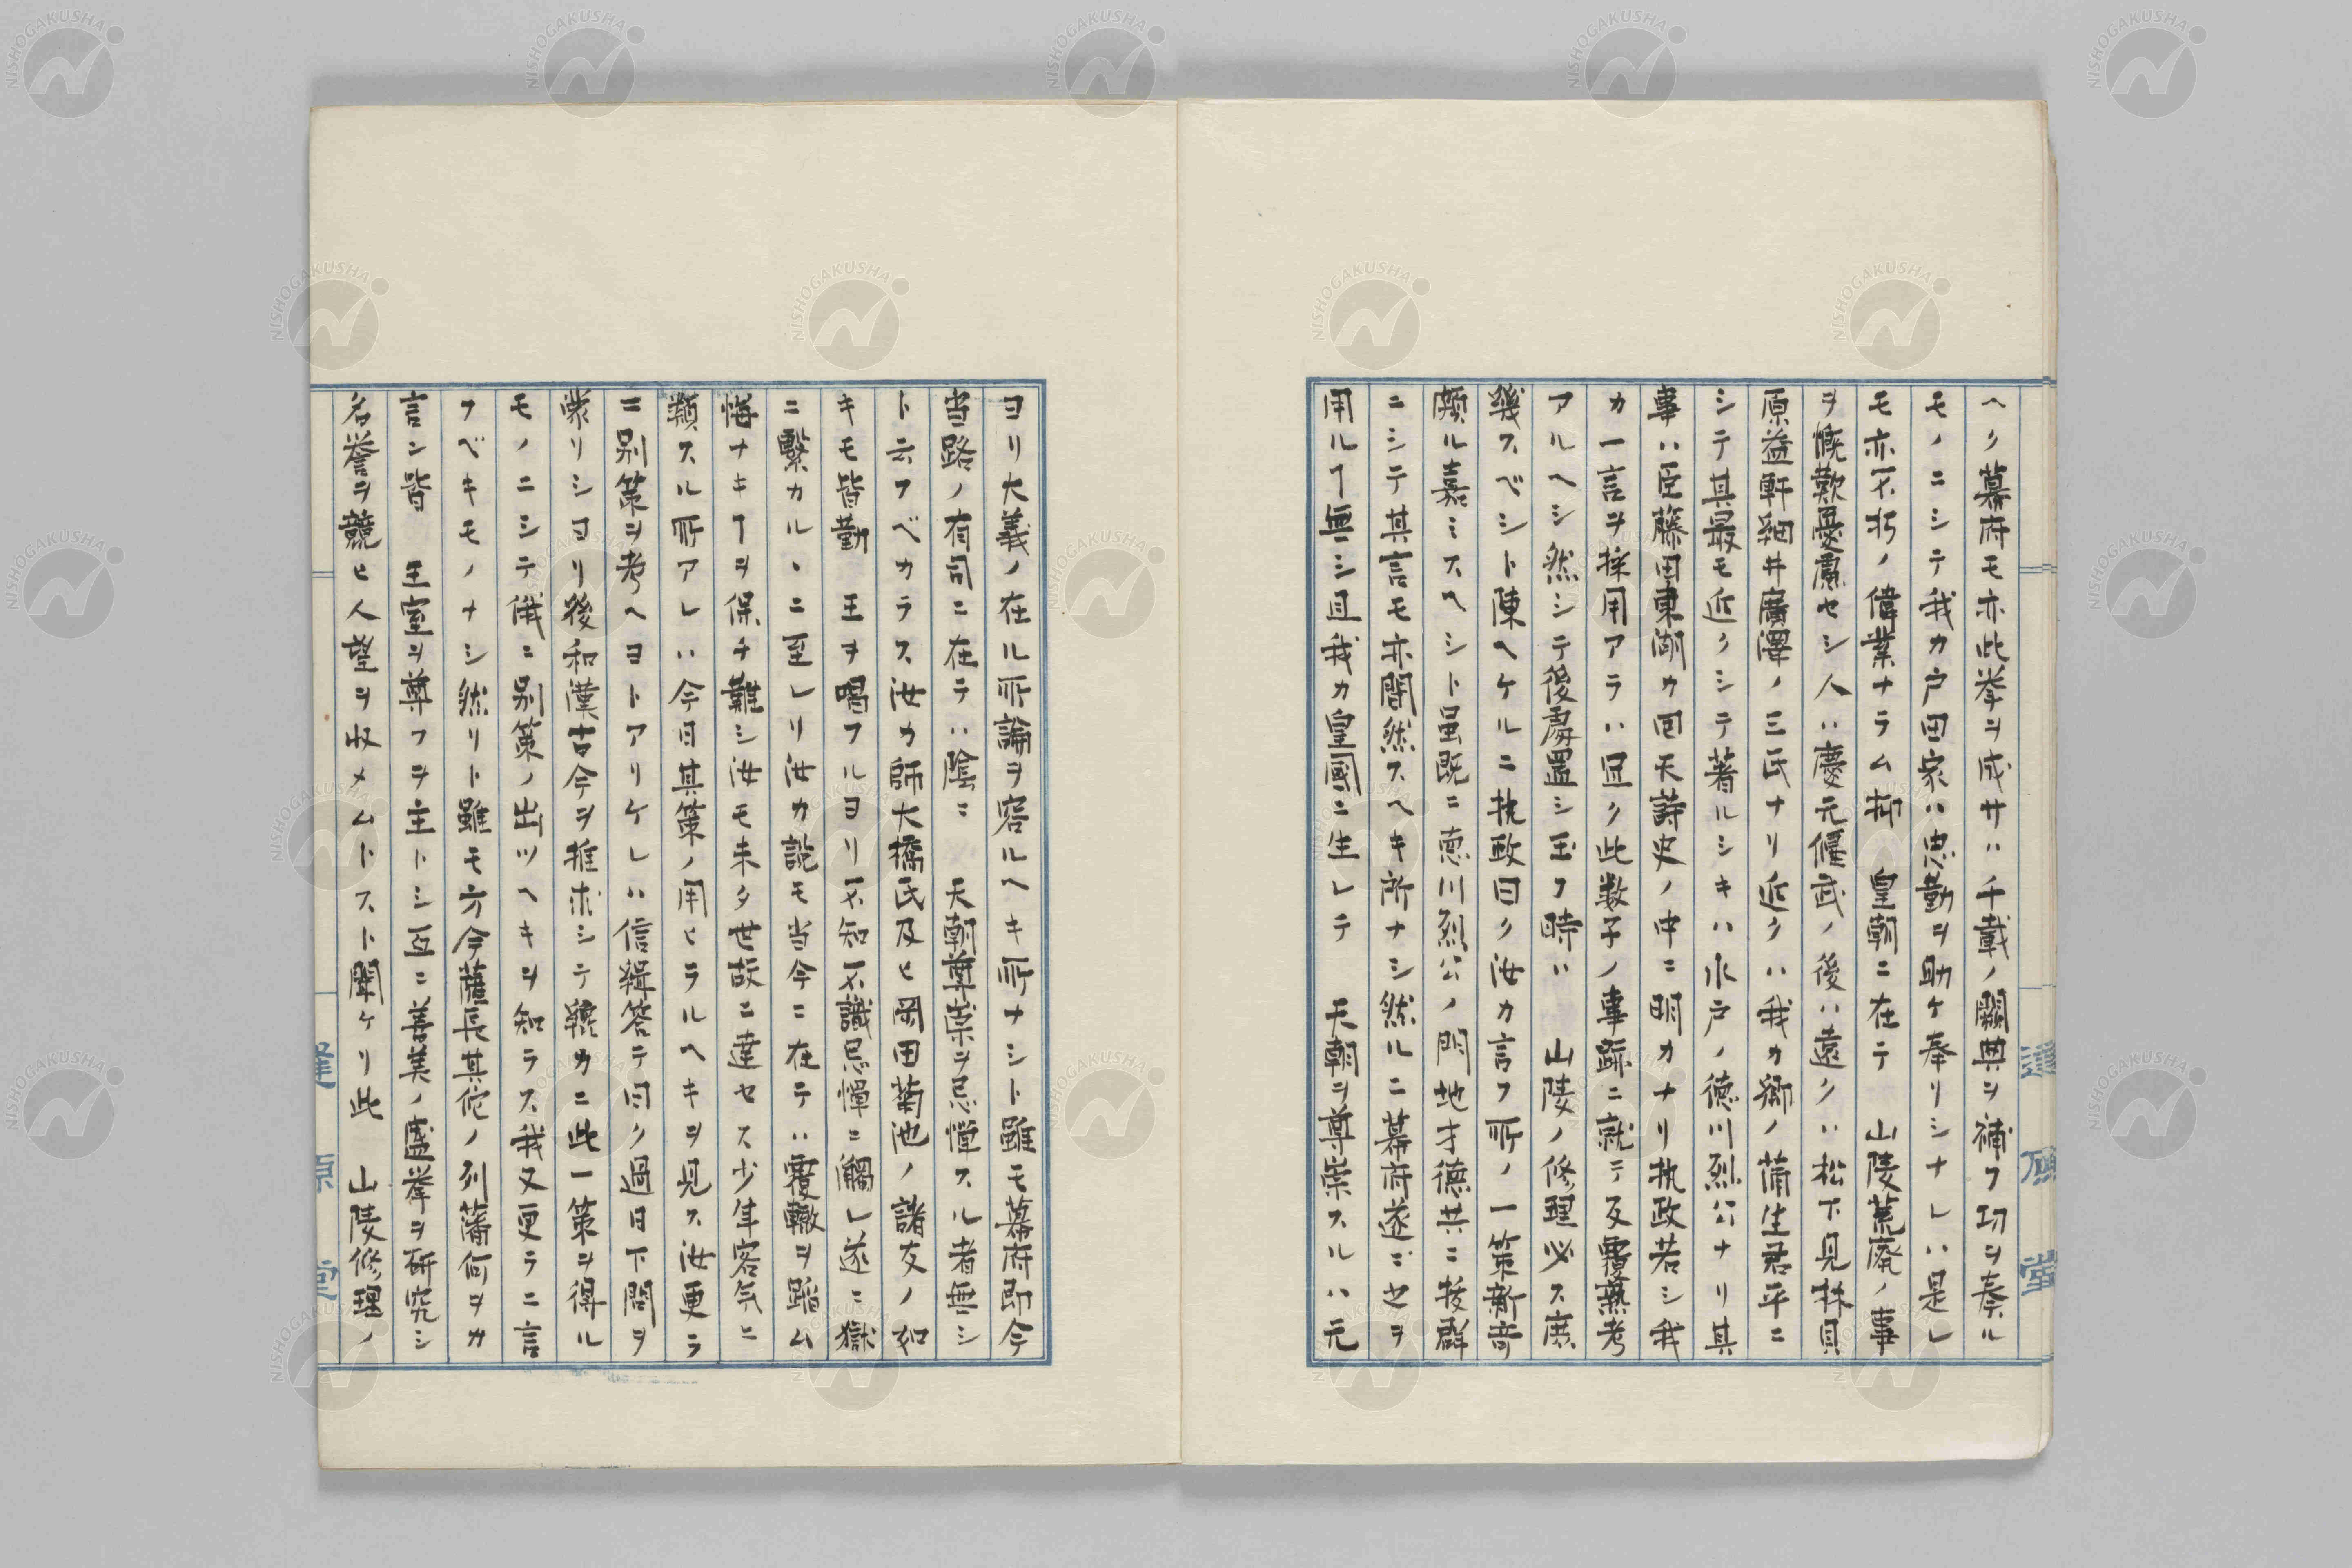 ヘク幕府モ亦此挙ヲ成サハ千載ノ闕典ヲ補フ功ヲ奏ル
モノニシテ我カ戸田家ハ忠勤ヲ助ケ奉リシナレハ是レ
モ亦不朽ノ偉業ナラム抑　皇朝ニ在テ　山陵荒廃ノ事
ヲ慨歎憂慮セシ人ハ慶元偃武ノ後ハ遠クハ松下見林貝
原益軒細井廣澤ノ三氏ナリ近クハ我カ郷ノ蒲生君平ニ
シテ其最モ近クシテ著ルシキハ水戸ノ徳川烈公ナリ其
事ハ臣藤田東湖カ回天詩史ノ中ニ明カナリ執政若シ我
カ一言ヲ採用アラハ冝ク此数子ノ事跡ニ就テ反覆熟考
アルヘシ然シテ後處置シ玉フ時ハ　山陵ノ修理必ス庶
幾スベシト陳ヘケルニ執政曰ク汝カ言フ所ノ一策新奇
頗ル嘉ミスヘシト虽既ニ徳川烈公ノ門地才徳共ニ抜群
ニシテ其言モ亦間然スヘキ所ナシ然ルニ幕府遂ニ之ヲ
用ルヿ無シ且我カ皇國ニ生レテ　天朝ヲ尊崇スルハ元
ヨリ大義ノ在ル所論ヲ容ルヘキ所ナシト雖モ幕府即今
当路ノ有司ニ在テハ陰ニ　天朝尊崇ヲ忌憚スル者無シ
ト云フベカラス汝カ師大橋氏及ヒ岡田菊池ノ諸友ノ如
キモ皆勤　王ヲ唱フルヨリ不知不識忌憚ニ觸レ遂ニ獄
ニ繫カルヽニ至レリ汝カ説モ当今ニ在テハ覆轍ヲ蹈ム
悔ナキヿヲ保チ難シ汝モ未タ世故ニ達セス少年客気ニ
類スル所アレハ今日其策ノ用ヒラルヘキヲ見ス汝更ラ
ニ別策ヲ考ヘヨトアリケレハ信緝答テ曰ク過日下問ヲ
蒙リシヨリ後和漢古今ヲ推求シテ纔カニ此一策ヲ得ル
モノニシテ俄ニ別策ノ出ツヘキヲ知ラス我又更ラニ言
フベキモノナシ然リト雖モ方今薩長其佗ノ列藩何ヲカ
言ン皆　王室ヲ尊フヲ主トシ互ニ善美ノ盛挙ヲ研究シ
名誉ヲ競ヒ人望ヲ収メムトスト聞ケリ此　山陵修理ノ
逢原堂
NISHOGAKUSHA